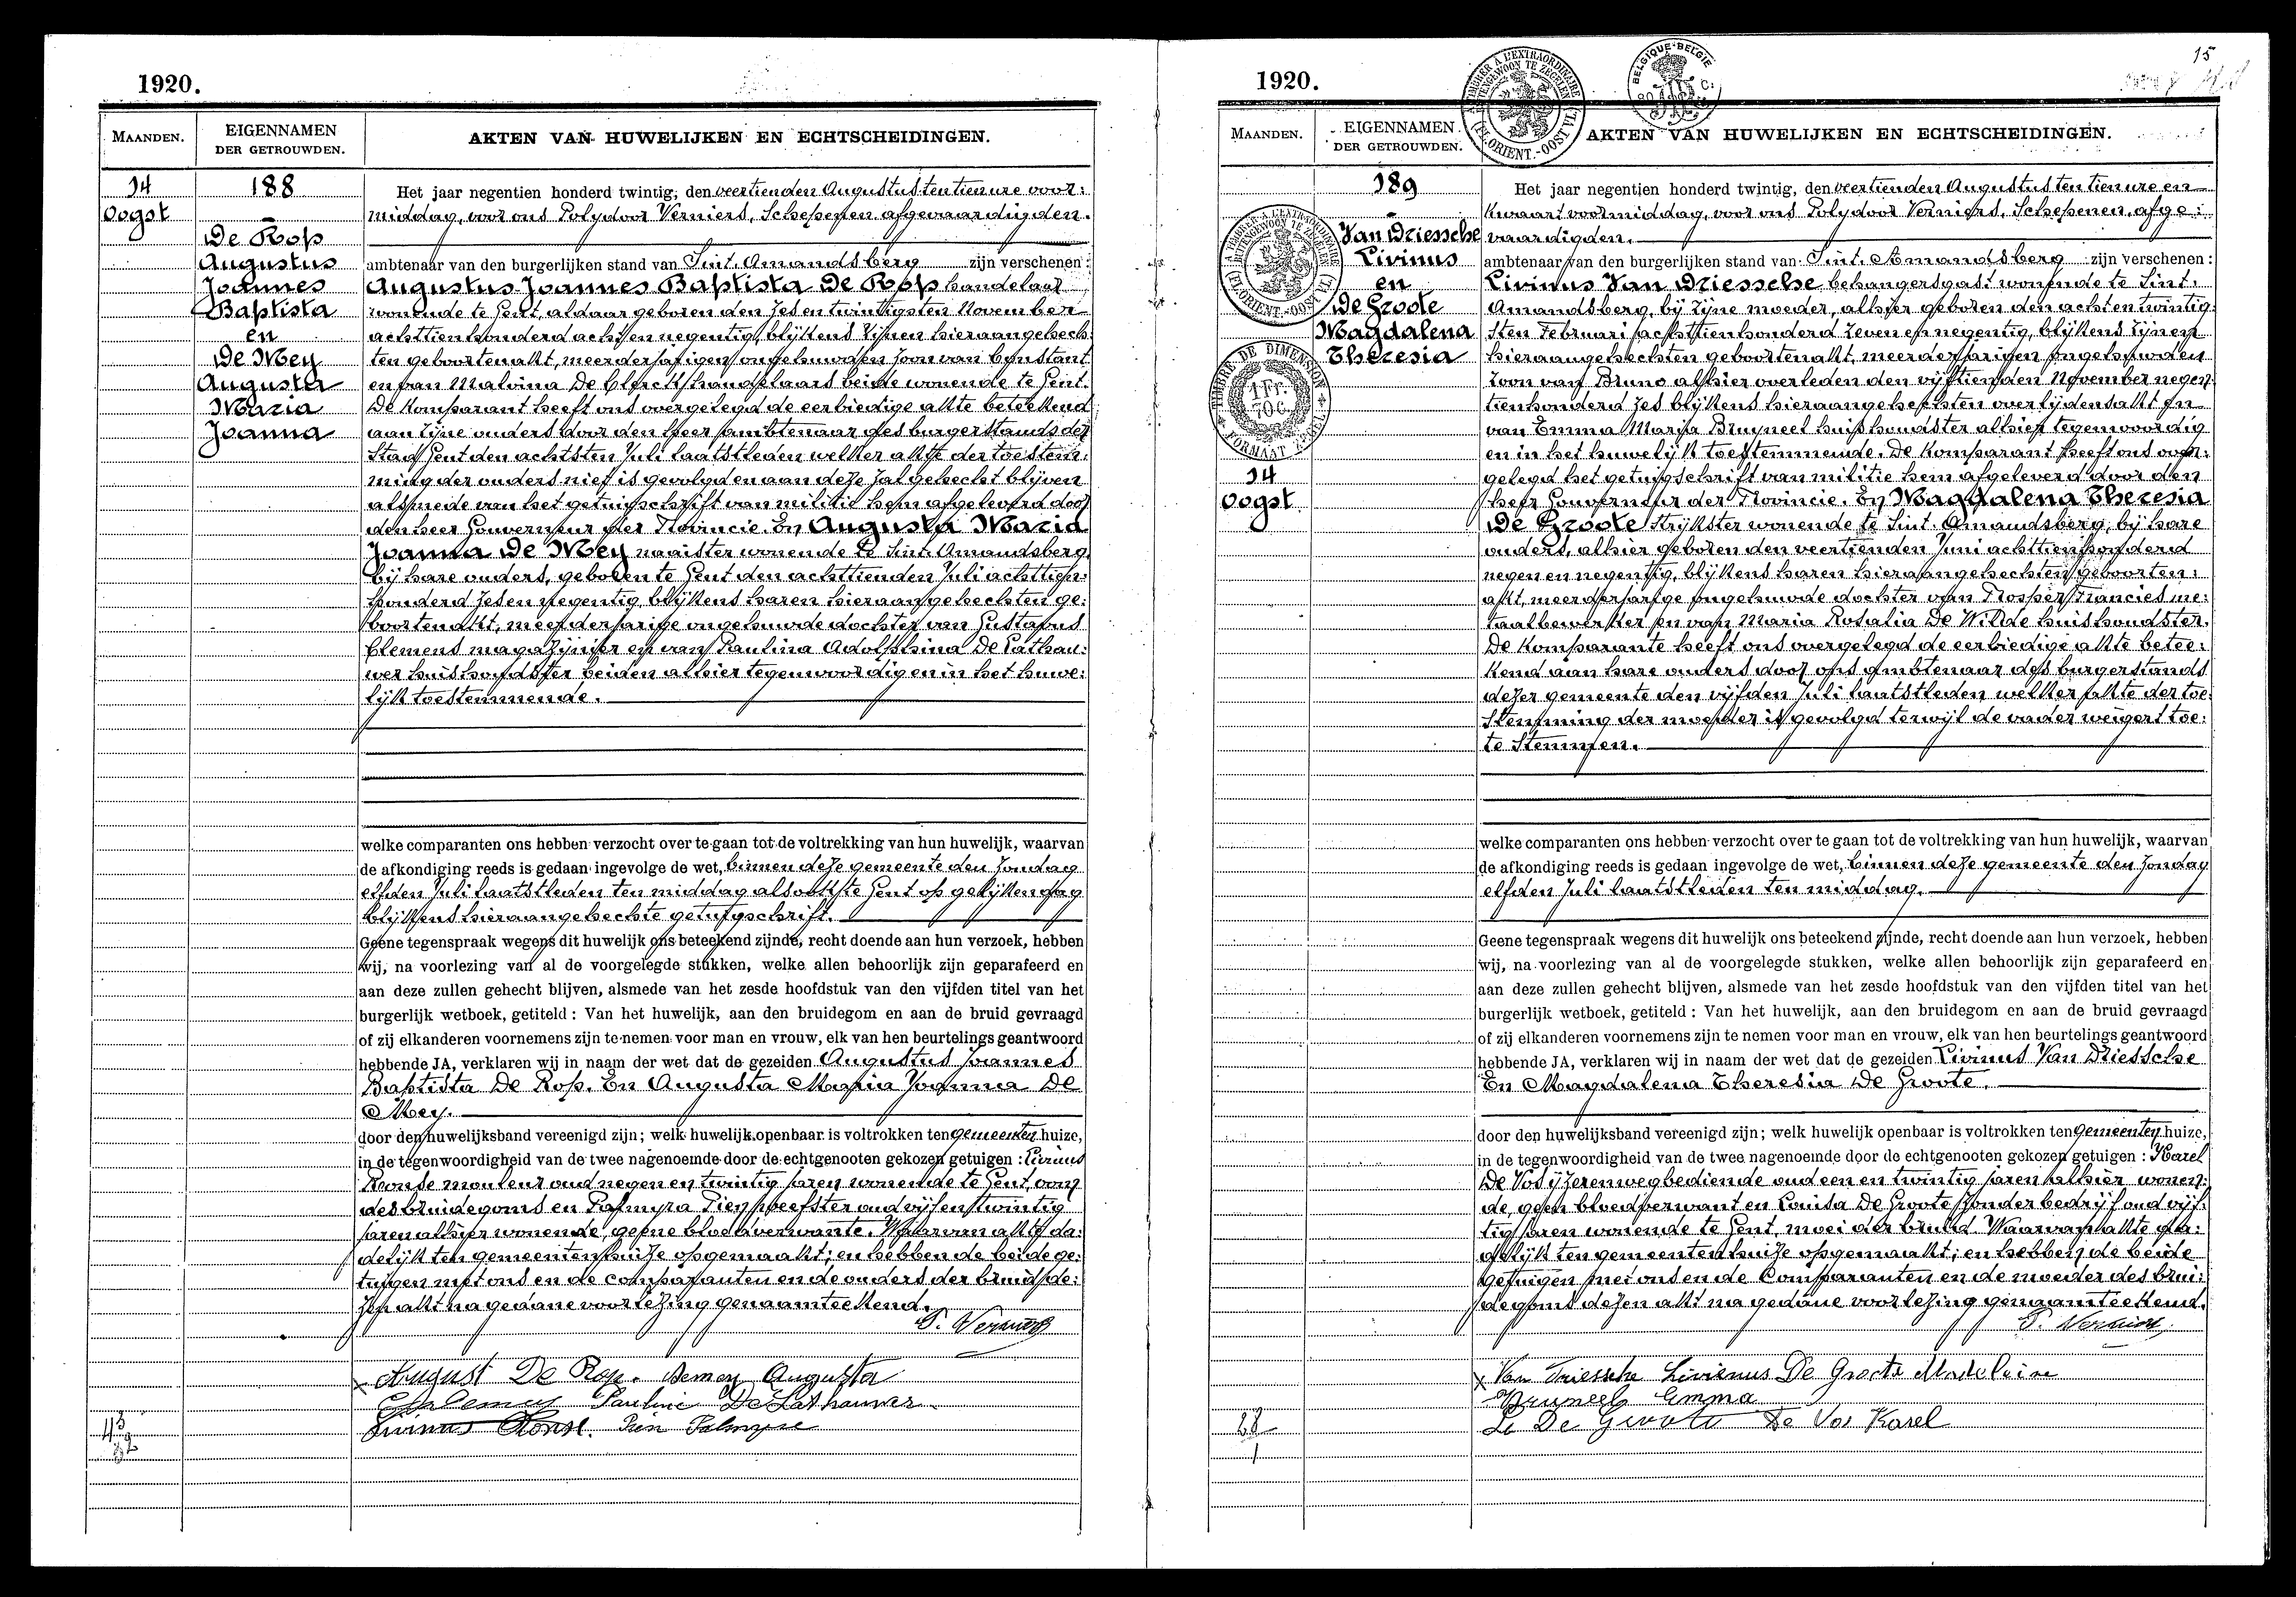 1920.
MAANDEN.
EIGENNAMEN
DER GETROUWDEN.
AKTEN VAN HUWELIJKEN EN ECHTSCHEIDINGEN.
14
Oogst
188
De Rop
Augustus
Joannes
Baptista
en
De Mey
Augusta
Maria
Joanna
Het jaar negentien honderd twintig, den veertienden Augustus ten tien ure voor:
middag, voor ons Polydoor Verniers, Schepenen afgevaardigden.
ambtenaar van den burgerlijken stand van Sint. Amandsberg zijn verschenen:
Augustus Joannes Baptista De Rop handelaar
wonende te Gent, aldaar geboren den zes en twintigsten November
achttienhonderd acht en negentig, blijkens zijnen hieraangehech:
ten geboortenakt, meerderjarigen ongehuwden zoon van Constant
en van Malvina De Clerck handelaars beide wonende te Gent.
De Komparant heeft ons overgelegd de eerbiedige akte beteekend
aan zijne ouders door den heer ambtenaar des burgerstands der
Stad Gent den achtsten Juli laatstleden welker akte der toestem:
ming der ouders niet is gevolgd en aan deze zal gehecht blijven
alsmede van het getuigschrift van militie hem afgeleverd door
den heer Gouverneur der Provincie. En Augusta Maria
Joanna De Mey naaister wonende te Sint. Amandsberg
bij hare ouders, geboren te Gent den achttienden Juli achttien:
honderd zes en negentig, blijkens haren hieraangehechten ge:
boortenakt, meerderjarige ongehuwde dochter van Gustavus
Clemens magazijnier en van Paulina Adolphina De Lathau:
wer huishoudster beiden alhier tegenwoordig en in het huwe:
lijk toestemmende.
welke comparanten ons hebben verzocht over te gaan tot de voltrekking van hun huwelijk, waarvan
de afkondiging reeds is gedaan ingevolge de wet, binnen deze gemeente den Zondag
elfden Juli laatstleden ten middag alsook te Gent op gelijken dag
blijkens hieraangehechte getuigschrift.
Geene tegenspraak wegens dit huwelijk ons beteekend zijnde, recht doende aan hun verzoek, hebben
wij, na voorlezing van al de voorgelegde stukken, welke allen behoorlijk zijn geparafeerd en
aan deze zullen gehecht blijven, alsmede van het zesde hoofdstuk van den vijfden titel van het
burgerlijk wetboek, getiteld: Van het huwelijk, aan den bruidegom en aan de bruid gevraagd
of zij elkanderen voornemens zijn te nemen voor man en vrouw, elk van hen beurtelings geantwoord
hebbende JA, verklaren wij in naam der wet dat de gezeiden Augustus Joannes
Baptista De Rop. En Augusta Maria Joanna De
Mey.
door den huwelijksband vereenigd zijn; welk huwelijk openbaar is voltrokken ten gemeenten huize,
in de tegenwoordigheid van de twee nagenoemde door de echtgenooten gekozen getuigen: Livinus
Ronse mouleur oud negen en twintig jaren wonende te Gent, oom
des bruidegoms en Palmyra Pien weefster oud vijf en twintig
jaren alhier wonende, geene bloedverwante. Waarvan akte da:
delijk ten gemeentenhuize opgemaakt; en hebben de beide ge:
tuigen met ons en de comparanten en de ouders der bruid de:
zen akt na gedane voorlezing genaamteekend.
P. Verniers
x August De Rop. Demey Augusta
Pauline De Lathauwer
Livinus Ronse. Pien Palmyre
43
1920.
15
MAANDEN.
EIGENNAMEN
DER GETROUWDEN.
AKTEN VAN HUWELIJKEN EN ECHTSCHEIDINGEN.
BELGIQUE-BELGIË
TIMBRE DE DIMENSION
1 Fr.
70 c.
FORMAAT ZEGEL
14
Oogst
189
Van Driessche
Livinus
en
De Groote
Magdalena
Theresia
Het jaar negentien honderd twintig, den veertienden Augustus ten tien ure en
kwaart voormiddag, voor ons Polydoor Verniers, Schepenen, afge:
vaardigden.
ambtenaar van den burgerlijken stand van Sint. Amandsberg zijn verschenen:
Livinus Van Driessche behangersgast wonende te Sint.
Amandsberg, bij zijne moeder, alhier geboren den acht en twintig:
sten Februari achttienhonderd zeven en negentig, blijkens zijnen
hieraangehechten geboortenakt, meerderjarigen ongehuwden
zoon van Bruno alhier overleden den vijftienden November negen:
tienhonderd zes blijkens hieraangehechten overlijdensakt en
van Emma Maria Bruyneel huishoudster alhier tegenwoordig
en in het huwelijk toestemmende. De Komparant heeft ons over:
gelegd het getuigschrift van militie hem afgeleverd door den
heer Gouverneur der Provincie. En Magdalena Theresia
De Groote strijkster wonende te Sint. Amandsberg, bij hare
ouders, alhier geboren den veertienden Juni achttienhonderd
negen en negentig, blijkens haren hieraangehechten geboorten:
akt, meerderjarige ongehuwde dochter van Prosper Francies me:
taalbewerker en van Maria Rosalia De Wilde huishoudster.
De Komparante heeft ons overgelegd de eerbiedige akte betee:
kend aan hare ouders door ons ambtenaar des burgerstands
dezer gemeente den vijfden Juli laatstleden welker akte der toe:
stemming der moeder is gevolgd terwijl de vader weigert toe:
te stemmen.
welke comparanten ons hebben verzocht over te gaan tot de voltrekking van hun huwelijk, waarvan
de afkondiging reeds is gedaan ingevolge de wet, binnen deze gemeente den Zondag
elfden Juli laatstleden ten middag.
Geene tegenspraak wegens dit huwelijk ons beteekend zijnde, recht doende aan hun verzoek, hebben
wij, na voorlezing van al de voorgelegde stukken, welke allen behoorlijk zijn geparafeerd en
aan deze zullen gehecht blijven, alsmede van het zesde hoofdstuk van den vijfden titel van het
burgerlijk wetboek, getiteld: Van het huwelijk, aan den bruidegom en aan de bruid gevraagd
of zij elkanderen voornemens zijn te nemen voor man en vrouw, elk van hen beurtelings geantwoord
hebbende JA, verklaren wij in naam der wet dat de gezeiden Livinus Van Driessche
En Magdalena Theresia De Groote.
door den huwelijksband vereenigd zijn; welk huwelijk openbaar is voltrokken ten gemeenten huize,
in de tegenwoordigheid van de twee nagenoemde door de echtgenooten gekozen getuigen: Karel
De Vos ijzerenwegbediende oud een en twintig jaren alhier wonen:
de, geen bloedverwant en Louisa De Groote zonder bedrijf oud vijf:
tig jaren wonende te Gent, moei der bruid. Waarvan akte da:
delijk ten gemeentenhuize opgemaakt; en hebben de beide
getuigen met ons en de Comparanten en de moeder des brui:
degoms dezen akt na gedane voorlezing genaamteekend.
P. Verniers
x Van Driessche Livienus De Groote Madeleine
Bruneel Emma
L. De Groote De Vos Karel
28
1